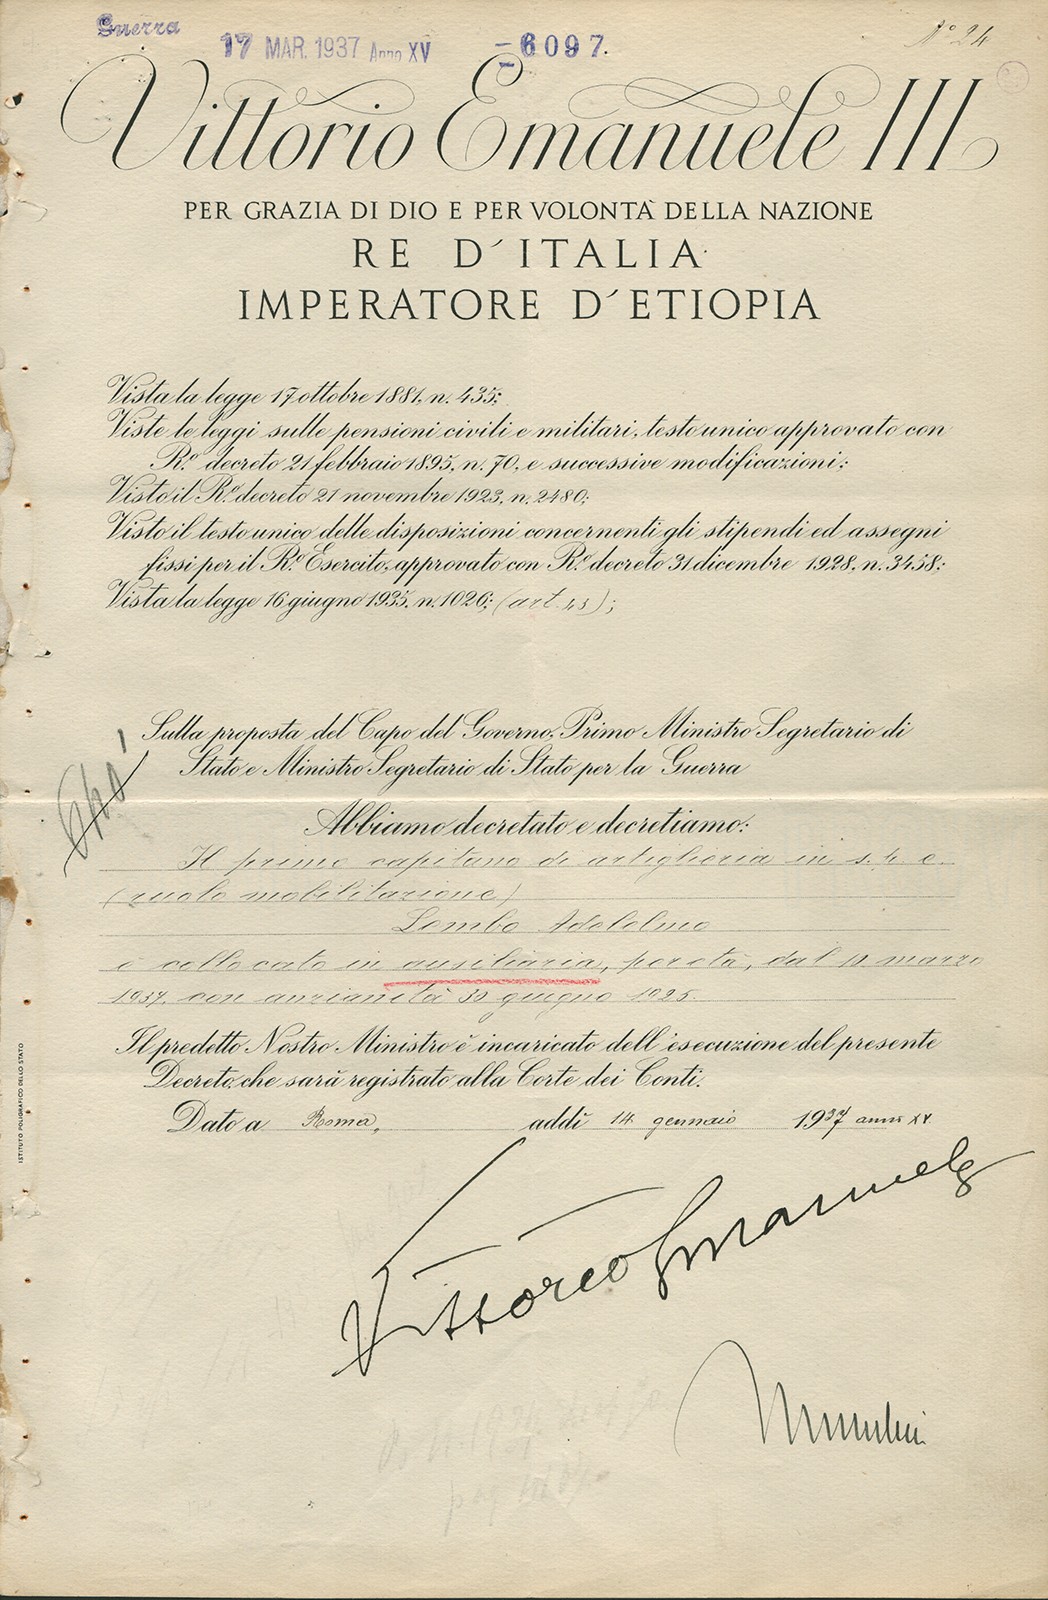 Guerra
17 MAR. 1937 Anno XV
6097.
Nº 24
Vittorio Emanuele III
PER GRAZIA DI DIO E PER VOLONTÀ DELLA NAZIONE
RE D'ITALIA
IMPERATORE D'ETIOPIA
Vista la legge 17 ottobre 1881, n. 435;
Viste le leggi sulle pensioni civili e militari, testo unico approvato con
R.º decreto 21 febbraio 1895, n. 70, e successive modificazioni;
Visto il R.º decreto 21 novembre 1923, n. 2480;
Visto il testo unico delle disposizioni concernenti gli stipendi ed assegni
fissi per il R.º Esercito, approvato con R.º decreto 31 dicembre 1928, n. 3458;
Vista la legge 16 giugno 1935, n. 1026; (art. 43);
Sulla proposta del Capo del Governo, Primo Ministro Segretario di
Stato e Ministro Segretario di Stato per la Guerra
Abbiamo decretato e decretiamo:
Il primo capitano di artiglieria in s. p. e.
(ruolo mobilitazione)
Lombo Adelelmo
è collocato in ausiliaria, per età, dal 10 marzo
1937, con anzianità 30 giugno 1925.
Il predetto Nostro Ministro è incaricato dell'esecuzione del presente
Decreto, che sarà registrato alla Corte dei Conti.
Dato a Roma, addì 14 gennaio 1937 anno XV
Vittorio Emanuele
Mussolini
ISTITUTO POLIGRAFICO DELLO STATO